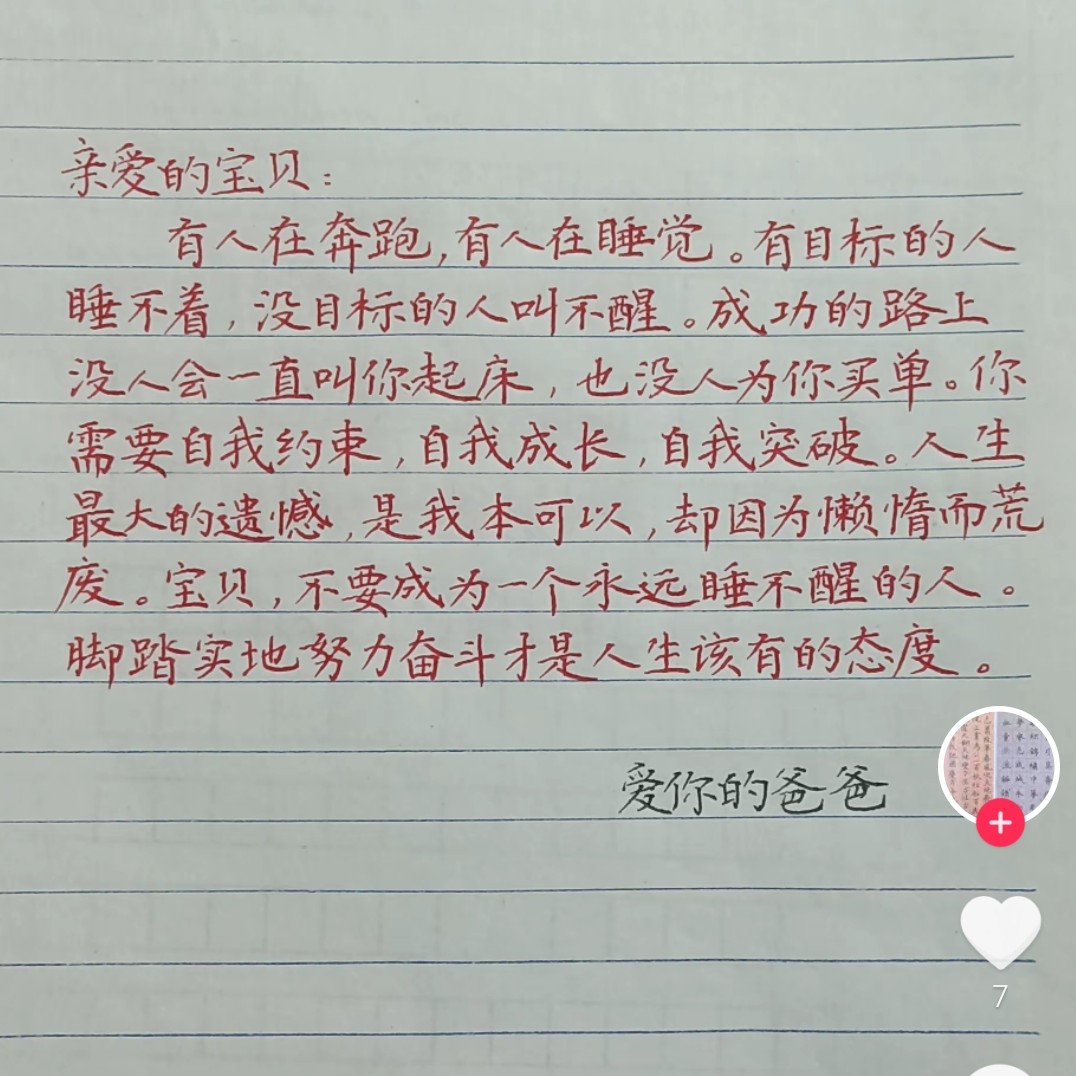 亲爱的宝贝:
有人在奔跑,有人在睡觉。有目标的人
睡不着,没目标的人叫不醒。成功的路上
没人会一直叫你起床,也没人为你买单。你
需要自我约束,自我成长,自我突破。人生
最大的遗憾,是我本可以,却因为懒惰而荒
废。宝贝,不要成为一个永远睡不醒的人。
脚踏实地努力奋斗才是人生该有的态度。
爱你的爸爸
7